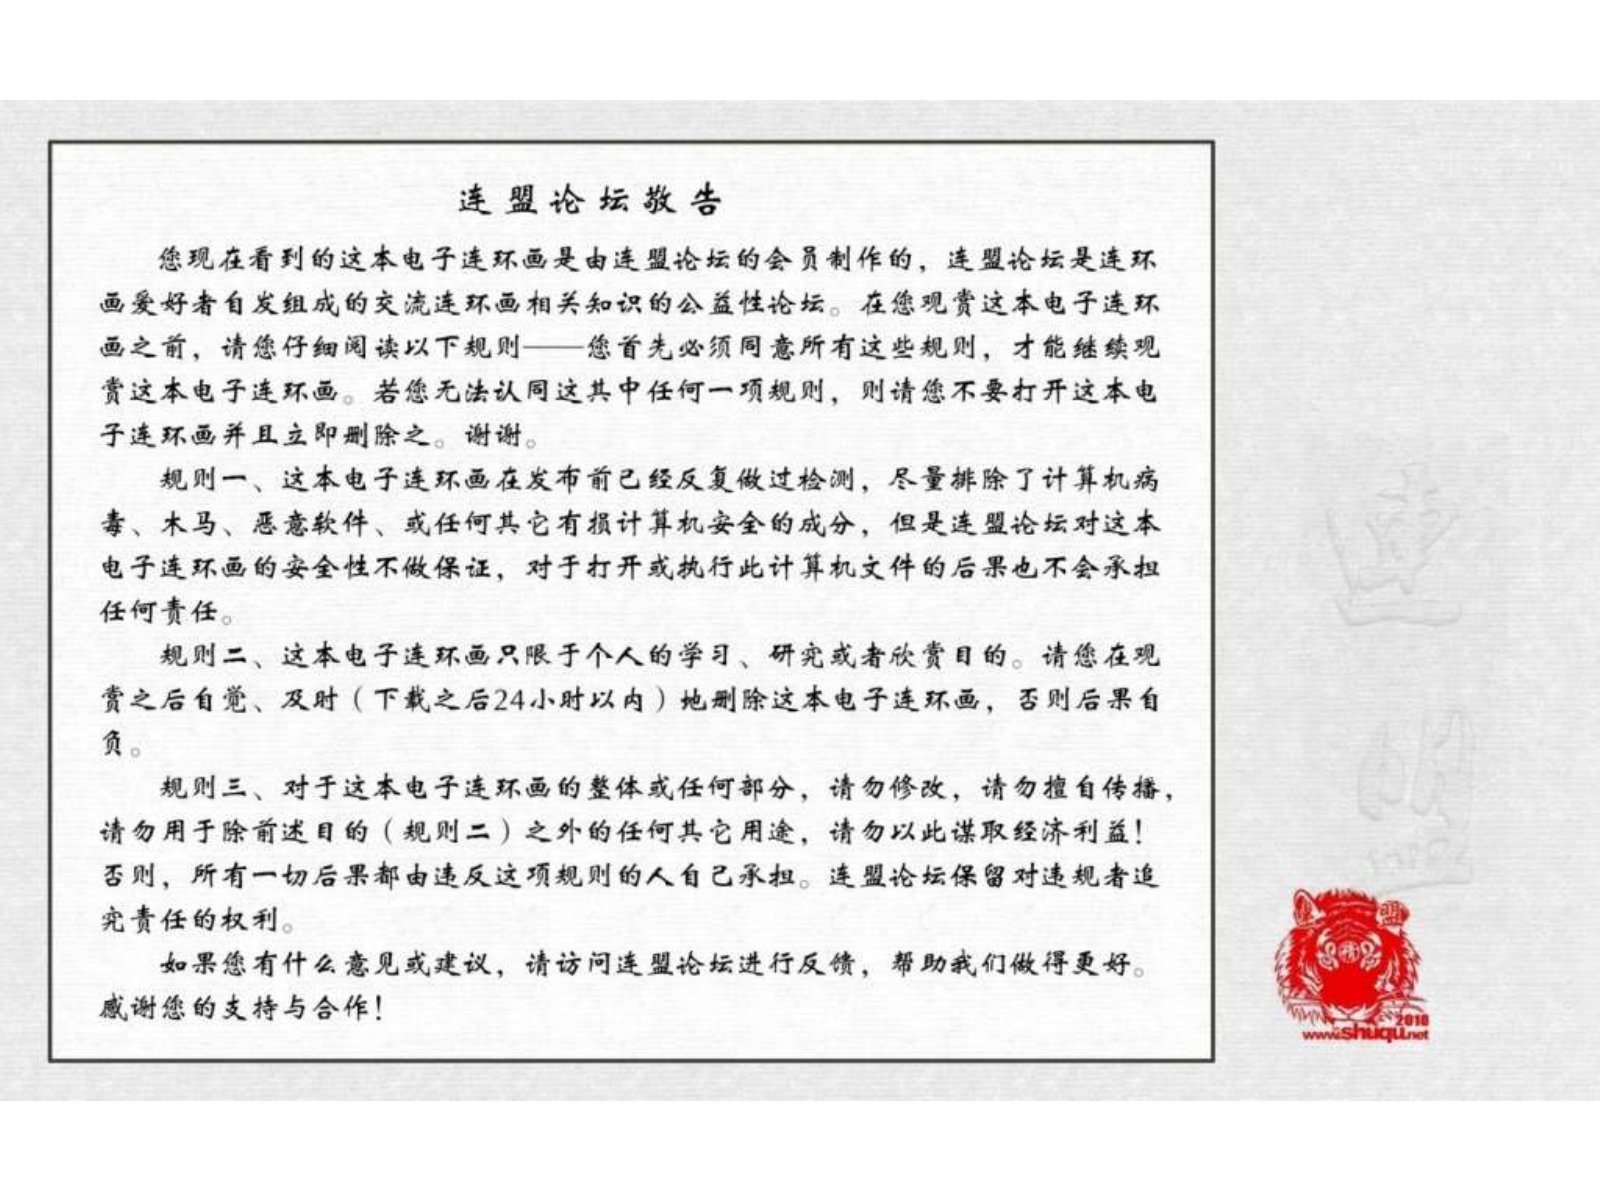 连盟论坛敬告
您现在看到的这本电子连环画是由连盟论坛的会员制作的，连盟论坛是连环
画爱好者自发组成的交流连环画相关知识的公益性论坛。在您观赏这本电子连环
画之前，请您仔细阅读以下规则——您首先必须同意所有这些规则，才能继续观
赏这本电子连环画。若您无法认同这其中任何一项规则，则请您不要打开这本电
子连环画并且立即删除之。谢谢。
规则一、这本电子连环画在发布前已经反复做过检测，尽量排除了计算机病
毒、木马、恶意软件、或任何其它有损计算机安全的成分，但是连盟论坛对这本
电子连环画的安全性不做保证，对于打开或执行此计算机文件的后果也不会承担
任何责任。
规则二、这本电子连环画只限于个人的学习、研究或者欣赏目的。请您在观
赏之后自觉、及时（下载之后24小时以内）地删除这本电子连环画，否则后果自
负。
规则三、对于这本电子连环画的整体或任何部分，请勿修改，请勿擅自传播，
请勿用于除前述目的（规则二）之外的任何其它用途，请勿以此谋取经济利益！
否则，所有一切后果都由违反这项规则的人自己承担。连盟论坛保留对违规者追
究责任的权利。
如果您有什么意见或建议，请访问连盟论坛进行反馈，帮助我们做得更好。
感谢您的支持与合作！
2010
www.shuqu.net